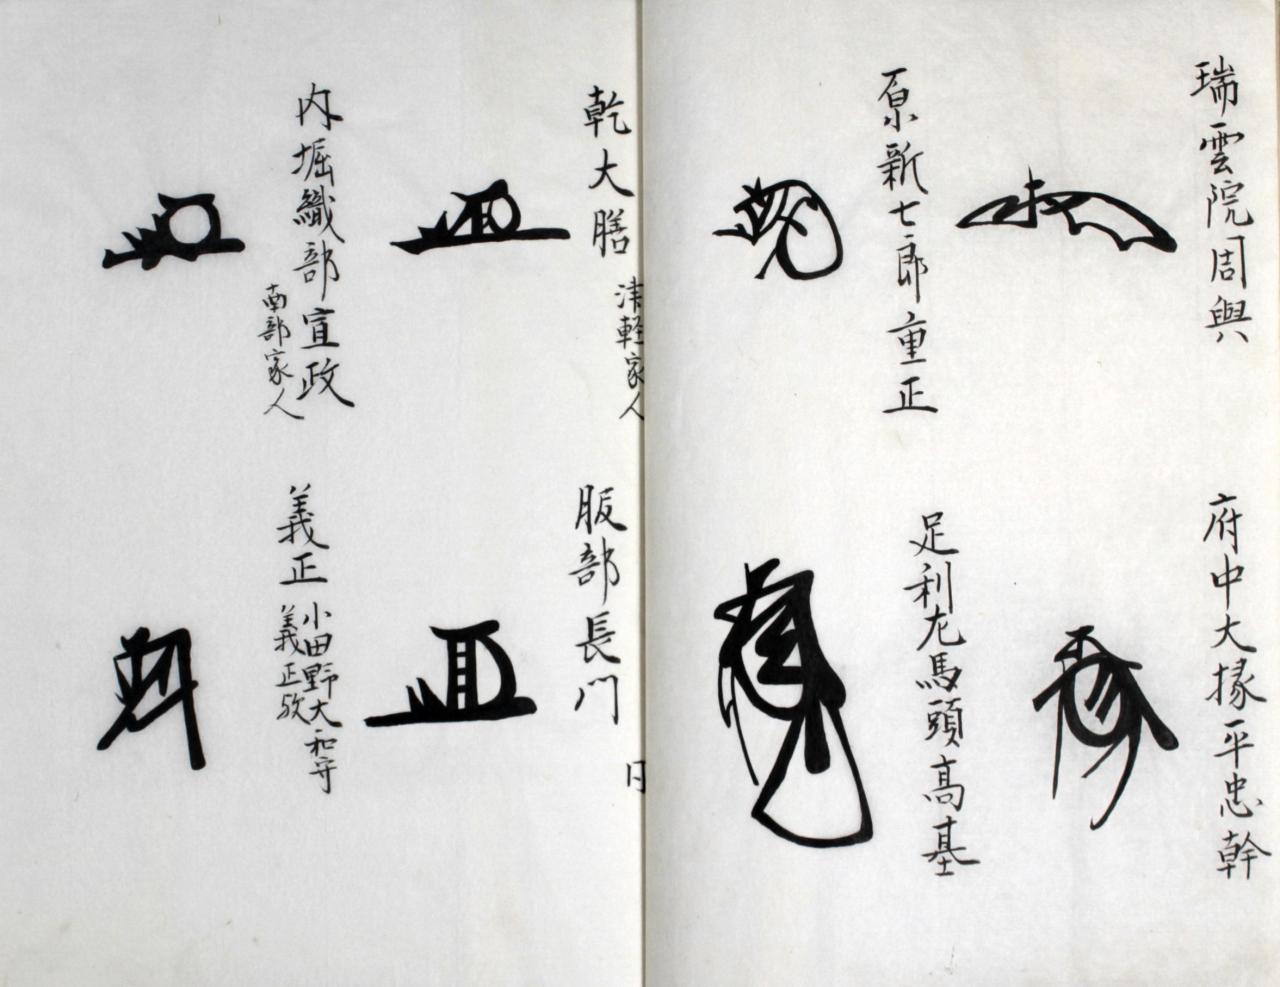 瑞雲院周興
府中大掾平忠幹
原新七郎重正
足利左馬頭高基
乾大膳
津軽家人
服部長門
同
内堀織部宣政
南部家人
義正
小田野大和守
義正歟